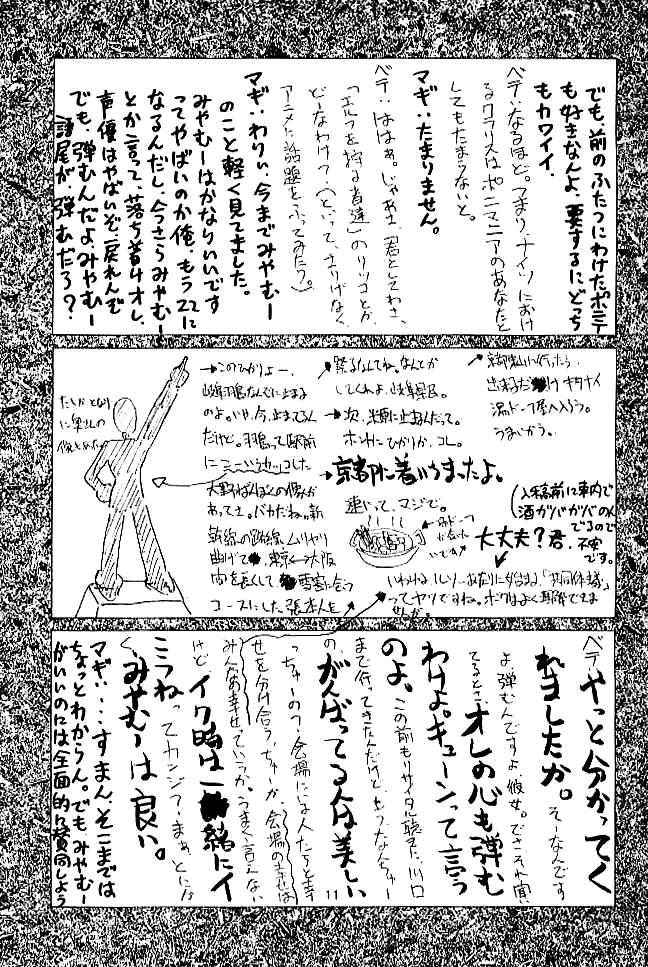 でも、前のふたつにわけたポニテ
も好きなんよ、要するにどっち
もカワイイ、
ベテ：なるほど。つまり、ナイツにおけ
るクラリスはポニマニアのあなたと
してもたまらないと。
マギ：たまりません。
ベテ：ははぁ。じゃあさ、君としてわさ、
「エルフを狩る者達」のリツコとか、
どーなわけ？（といって、さりげなく
アニメに話題をふってみたり。）
マギ：わりい、今までみやむー
のこと軽く見てました。
みやむーはかなりいいです
ってやばいのか俺、もう22に
なるんだし、今さらみやむー
とか言って、落ち着けオレ、
声優はやばいぞ、戻れんぞ
でも、弾むんだよみやむー
語尾が弾むだろ？
京都に行ったら、
出来るだけキタナイ
湯ドーフ屋へ入ろう。
うまいから。
祭るなんてね。なんとか
してくれよ、岐阜県民。
→次、米原に止まるんだって。
ホントにひかりか、コレ。
→京都に着いちまったよ。
速いって、マジで。
→このひかりよー、
岐阜羽島なんぞに止まる
のよ。いや、今、止まってるん
だけど。羽島って駅前
大野ばんぼくの像が
あってさ。バカだね。新
幹線の路線、ムリヤリ
曲げて東京〜大阪
間を長くして雪害に会う
コースにした張本人を
（入稿前に車内で
酒ガバガバのん
でるので
不安
です。
大丈夫？君、
ベテ：やっと分かってく
れましたか。そーなんです
よ、弾むんですよ、彼女。でさ、それ聞い
てるとさ、オレの心も弾む
わけよ。キューンって言う
のよ、この前もリサイタル聴きに川口
まで行ってきたんだけど、もうなんちゅー
の、がんばってる人は美しい
っちゅーの？会場にいる人たちと幸
せを分け合う、ちゅーか、会場の幸せは
みんなの幸せっていうか。うまく言えない
けど、イク時は一緒にイ
こうねってカンジ？まぁ、とにか
く、みやむーは良い。
マギ：…すまん、そこまでは
ちょっとわからん。でもみやむー
がいいのには全面的に賛同しよう